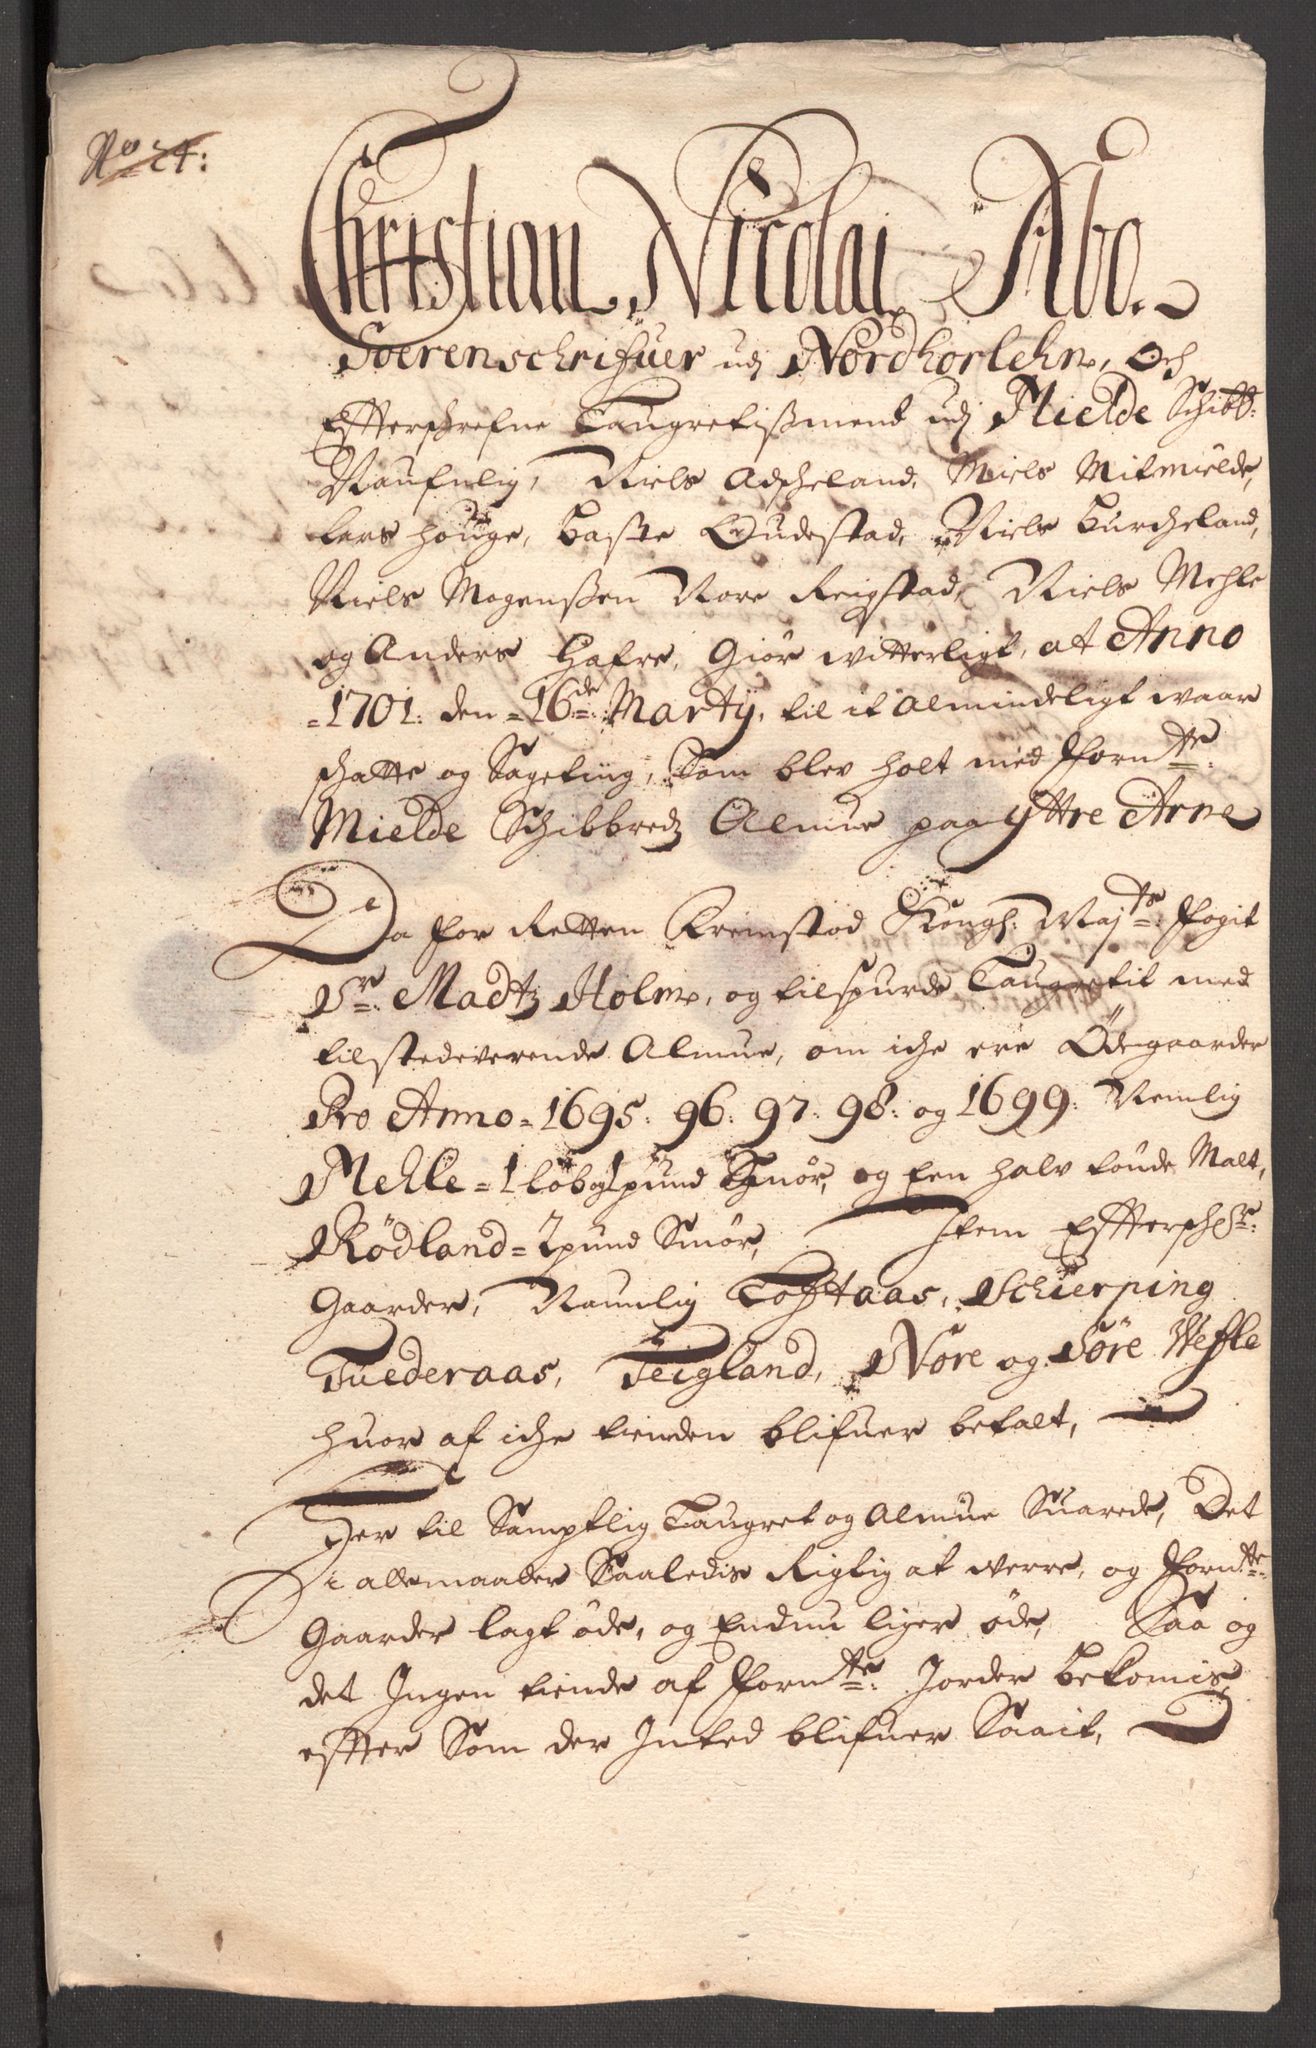 No 24:
Christian Nicolai Abo.
Soerenschrifuer udj Nordhorlehn, Och
Effterschrefne Laugretißmend udj Mielde Schibb:
Naufnlig, Niels Adscheland, Niels Mitmielde,
Lars Houge, Baste Qudestad, Niels Burcheland,
Niels Mogenßen Nore Reigstad, Niels Mehle
og Anders Hafre, Giör witterligt, at Anno
1701: den 16de Martij, til it Almindeligt waar
schatte og Sageting, Som blev holt med Fornte:
Mielde Schibbredz Almue paa Yttre Arne
Da for Retten Fremstod Kongl: Majts: Fogit
Sr: Madtz Holm, og tilspurde Laugretit med
tilstedeverende Almue, om iche ere Ödegaarder
Pro Anno 1695: 96: 97: 98: og 1699: Nemlig
Mehle = 1 Löb og 1 pund Smör, og Een halv tönde Malt,
Rödland = 2 pund Smör, Item Effterschr:
Gaarder, Naunlig Toftaas, Schierping
Tuederaas, Teigland, Nöre og Söre Wefle
huor af iche tienden blifuer betalt,
Her til Samptlig Laugret og Almue Suarede, Det
i alle maader Saaledis Rigtig at were, og Fornte:
Gaarder lagt öde, og Endnu liger öde, Saa og
det Ingen tiende af Fornte: Jorder bekomis,
effter Som der Inted blifuer Saait,